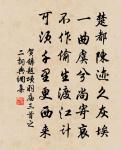 楚都陳迹久灰埃
一曲虞兮尚寄哀
不作偷生渡江計
可須千里更西來
賀鑄題項羽廟三首之
二詞典網集